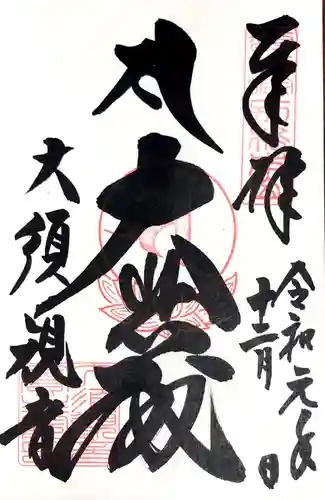 奉拝
令和元年
十二月 日
大悲殿
大須観音